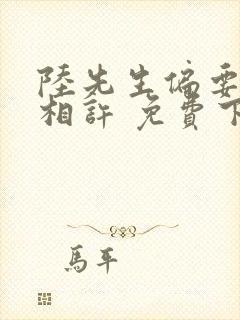 陸先生偏要
相許 免費下
馬平